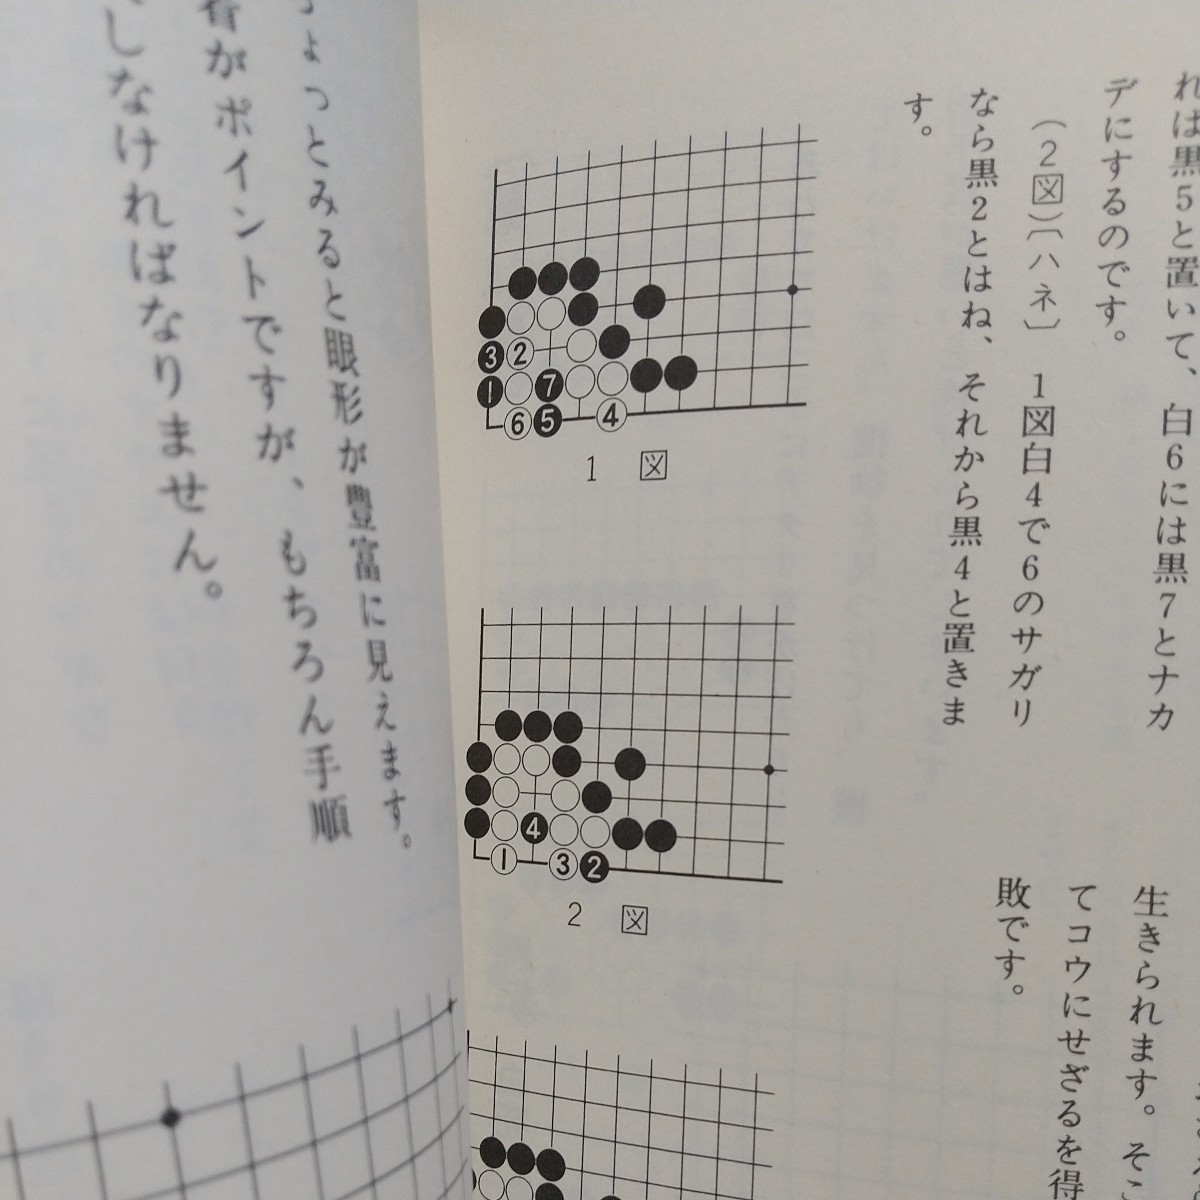 れは黒5と置いて、白6には黒7とナカ
デにするのです。
(2図)〔ハネ〕 1図白4で6のサガリ
なら黒2とはね、それから黒4と置きま
す。
生きられます。そこ
てコウにせざるを得
敗です。
3
2
1
7
6
5
4
1 図
4
1
3
2
2 図
ょっとみると眼形が豊富に見えます。
がポイントですが、もちろん手順
しなければなりません。